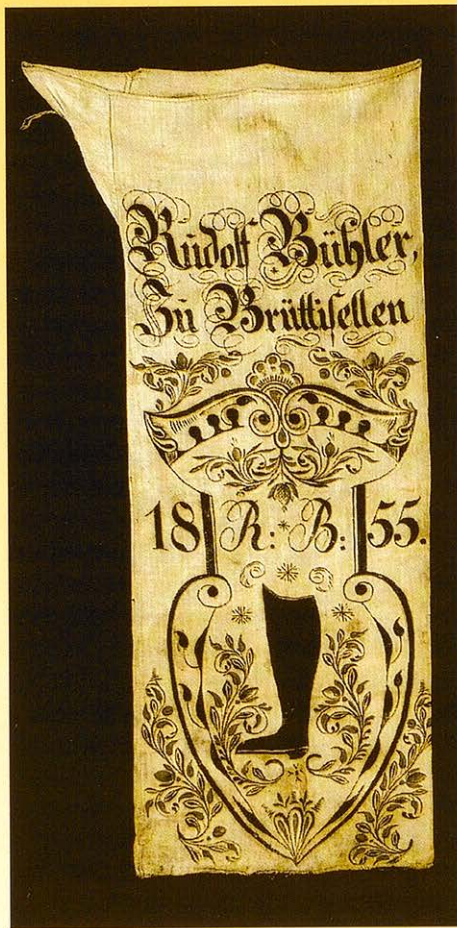 Rudolf Bühler,
Zu Brüttisellen
18 R: * B: 55.